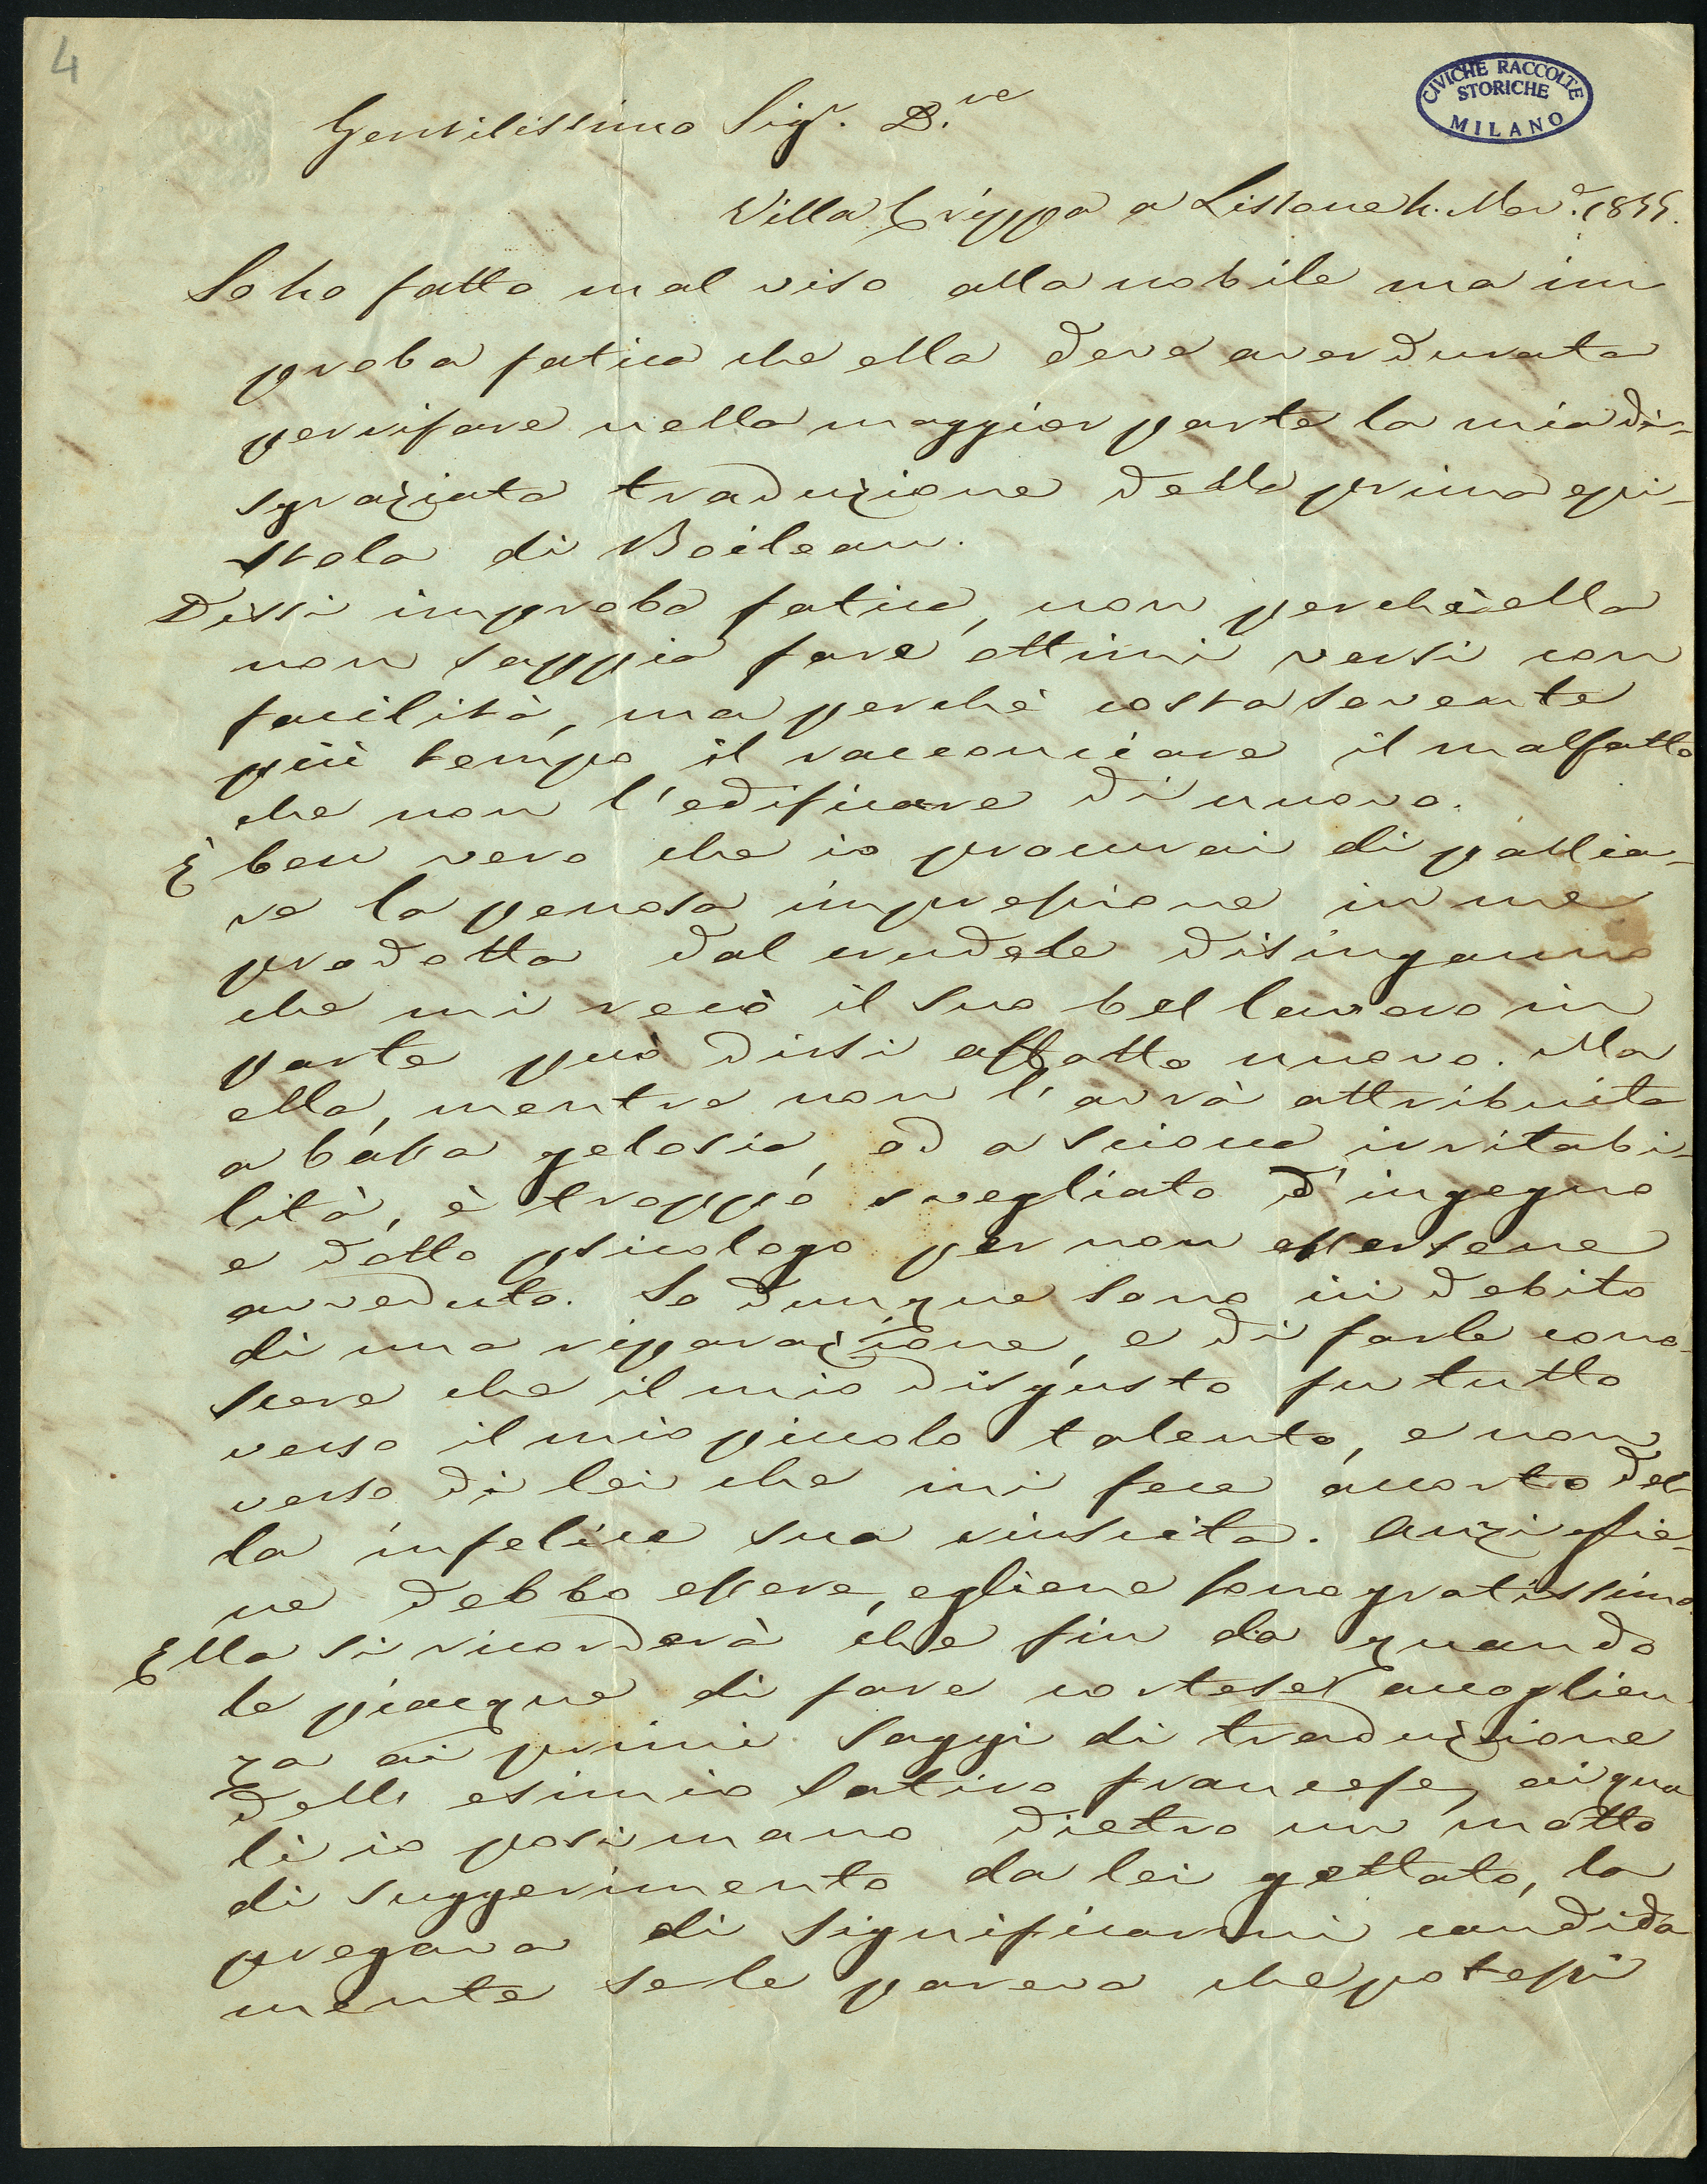 4
CIVICHE RACCOLTE
STORICHE
MILANO
Gentilissimo Sigr. D.re
Villa Crippa a Lissone 4. Nov.e 1855.
Io ho fatto mal viso alla nobile ma im
proba fatica che ella deve aver durata
per rifare nella maggior parte la mia di-
sgraziata traduzione della prima epi-
stola di Boileau.
Dissi improba fatica, non perchè ella
non sappia fare ottimi versi con
facilità, ma perchè costa sovente
più tempo il racconciare il malfatto
che non l'edificare di nuovo.
È ben vero che io procurai di pallia-
re la penosa impressione in me
prodotta dal crudele disinganno
che mi recò il suo bel lavoro in
parte può dirsi affatto nuovo. Ma
ella, mentre non l'avrà attribuita
a bassa gelosia, od a sciocca irritabi-
lità, è troppo svegliato d'ingegno
e dotto psicologo per non essersene
avveduto. Io dunque sono in debito
di una riparazione, e di farle cono-
scere che il mio disgusto fu tutto
verso il mio piccolo talento, e non
verso di lei che mi fece accorto del-
la infelice sua riuscita. Anzi glie-
ne debbo essere, egliene sono gratissimo.
Ella si ricorderà che fin da quando
le piacque di fare cortese accoglien
za ai primi saggi di traduzione
dell'esimio satiro francese, ai qua
li io posi mano dietro un motto
di suggerimento da lei gettato, la
pregava di significarmi candida
mente se le pareva che potessi